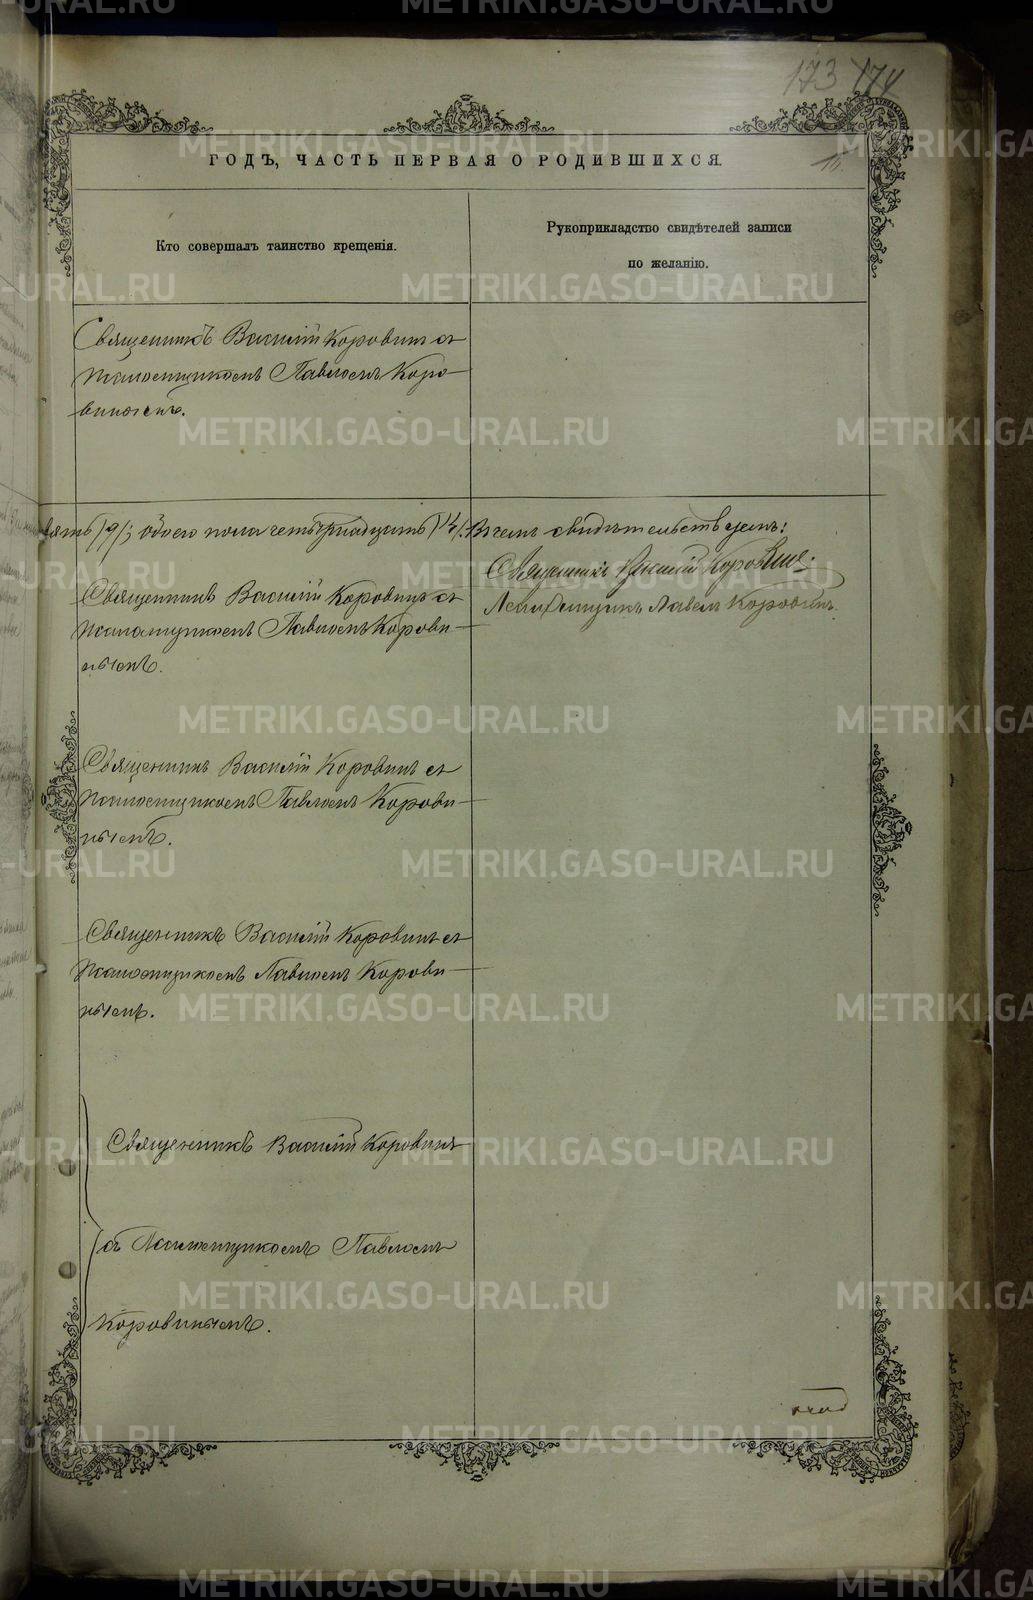 173 174
ГОДЪ, ЧАСТЬ ПЕРВАЯ О РОДИВШИХСЯ.
Кто совершалъ таинство крещенія.
Рукоприкладство свидѣтелей записи
по желанію.
Священникъ Василій Коровинъ съ
псаломщикомъ Павломъ Коро-
винымъ.
вять /9/; обоего пола четырнадцать /14/. Въ чемъ свидѣтельствуемъ:
Священникъ Василій Коровинъ.
Псаломщикъ Павелъ Коровинъ.
Священникъ Василій Коровинъ съ
псаломщикомъ Павломъ Корови-
нымъ.
Священникъ Василій Коровинъ съ
псаломщикомъ Павломъ Корови-
нымъ.
Священникъ Василій Коровинъ съ
псаломщикомъ Павломъ Корови-
нымъ.
Священникъ Василій Коровинъ
съ псаломщикомъ Павломъ
Коровинымъ.
METRIKI.GASO-URAL.RU